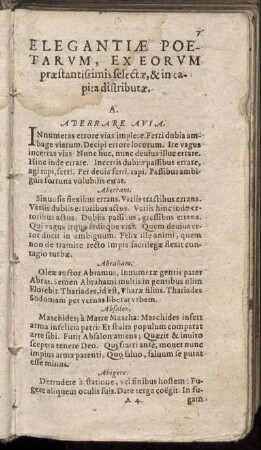 ELEGANTIÆ POE-
TARVM, EX EORVM
præstantissimis selectæ, & in ca-
pita distributæ.
A.
ABERRARE AVIA.
INnumeras errore vias implere. Ferri dubia am-
bage viarum. Decipi errore locorum. Ire vagus
incertas vias Nunc huc, nunc devius illuc errare.
Hinc inde errare. Incertis dubiis passibus errare,
agi rapi, ferri. Per devia ferri, rapi. Passibus ambi-
guis fortuna volubilis errat.
Aberrans.
Sinuosis flexibus errans. Variis tractibus errans.
Variis dubiis erroribus actus. Variis hinc inde er-
roribus actus. Dubiis passibus, gressibus errans.
Qui vagus itque reditque vias. Quem devius er-
ror ducit in ambiguum. Felix ille animi, quem
non de tramite recto Impia sacrilegæ flexit con-
tagio turbæ.
Abraham.
Olex auctor Abramus, Innumeræ gentis pater
Abras. Semen Abrahami multis in gentibus olim
Florebit Thariades, id est, Tharæ filius. Thariades
Sodomam per vernas liberat vrbem.
Absalon.
Maschides; à Matre Maacha: Maschides infert
arma infelicia patri: Et statuis populum comparat
arte sibi. Furit Absalon amens; Quærit & inuito
sceptra tenere Deo. Qui fratri ante, mouet nunc
impius arma parenti. Quo saluo, saluum se putat
esse minus.
Abigere.
Detrudere à statione, vel finibus hostem: Fu-
gere aliquem oculis suis. Dare terga coëgit. In
A 4. fugam